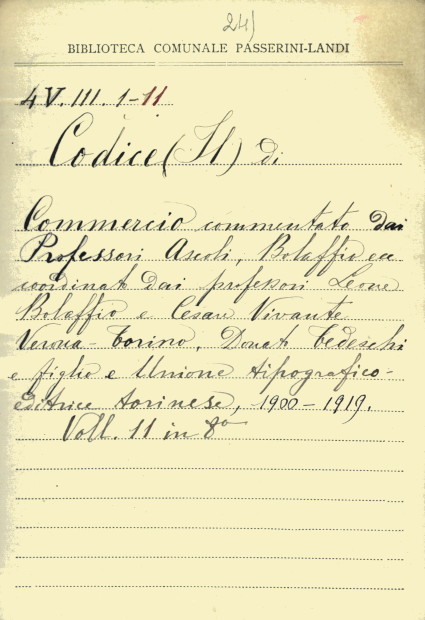 24)
BIBLIOTECA COMUNALE PASSERINI-LANDI
4V.III.1-11
Codice (Il) di
Commercio commentato dai
Professori Ascoli, Bolaffio ecc
coordinato dai professori Leone
Bolaffio e Cesare Vivante
Verona-Torino, Donato Tedeschi
e figlio e Unione tipografico-
editrice torinese, 1900-1919.
Voll. 11 in 8º